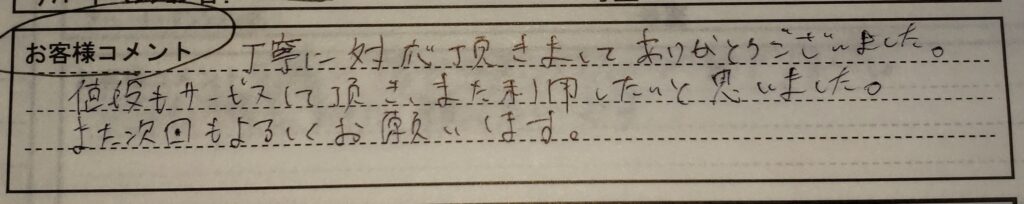 お客様コメント 丁寧に対応頂きましてありがとうございました。
値段もサービスして頂き、また利用したいと思いました。
また次回もよろしくお願いします。